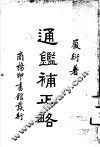 嚴衍著
通鑑補正略
商務印書館發行